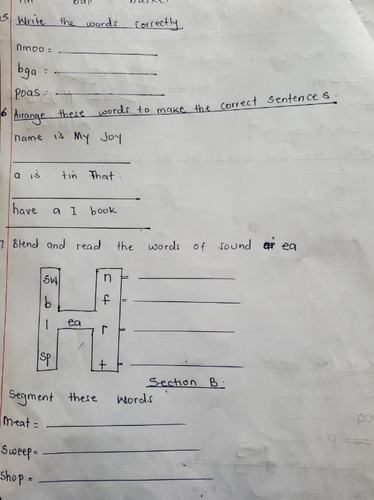 5. Write the words correctly
nmoo =
bga =
poas =
6 Arrange these words to make the correct sentences.
name is My Joy
a is tin That.
have a I book
7. Blend and read the words of sound ea
sw n =
b f =
ea
l r =
sp t =
Section B.
Segment these words
meat =
Sweep =
Shop =